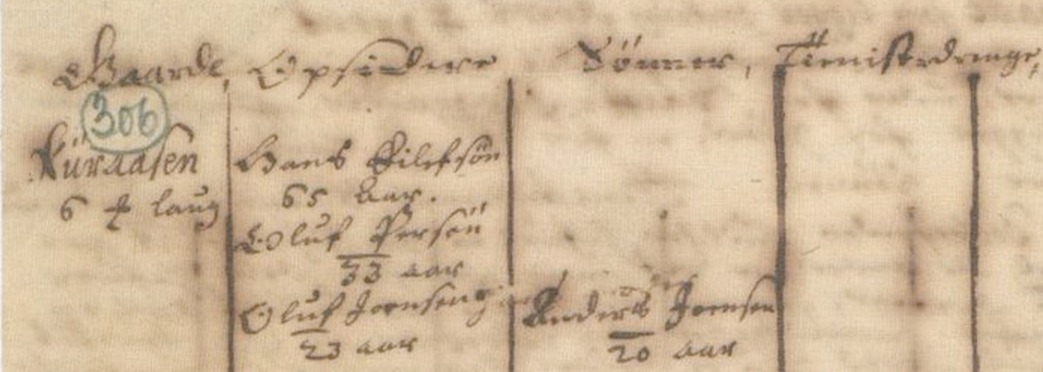 Gaarde, Opsidere Sönner, Tienistedrenge,
306
Küraasen
6 laug
Hans Eilefsön
65 aar.
Oluf Persön
33 aar
Oluf Joensen
23 aar
Anders Joensen
20 aar